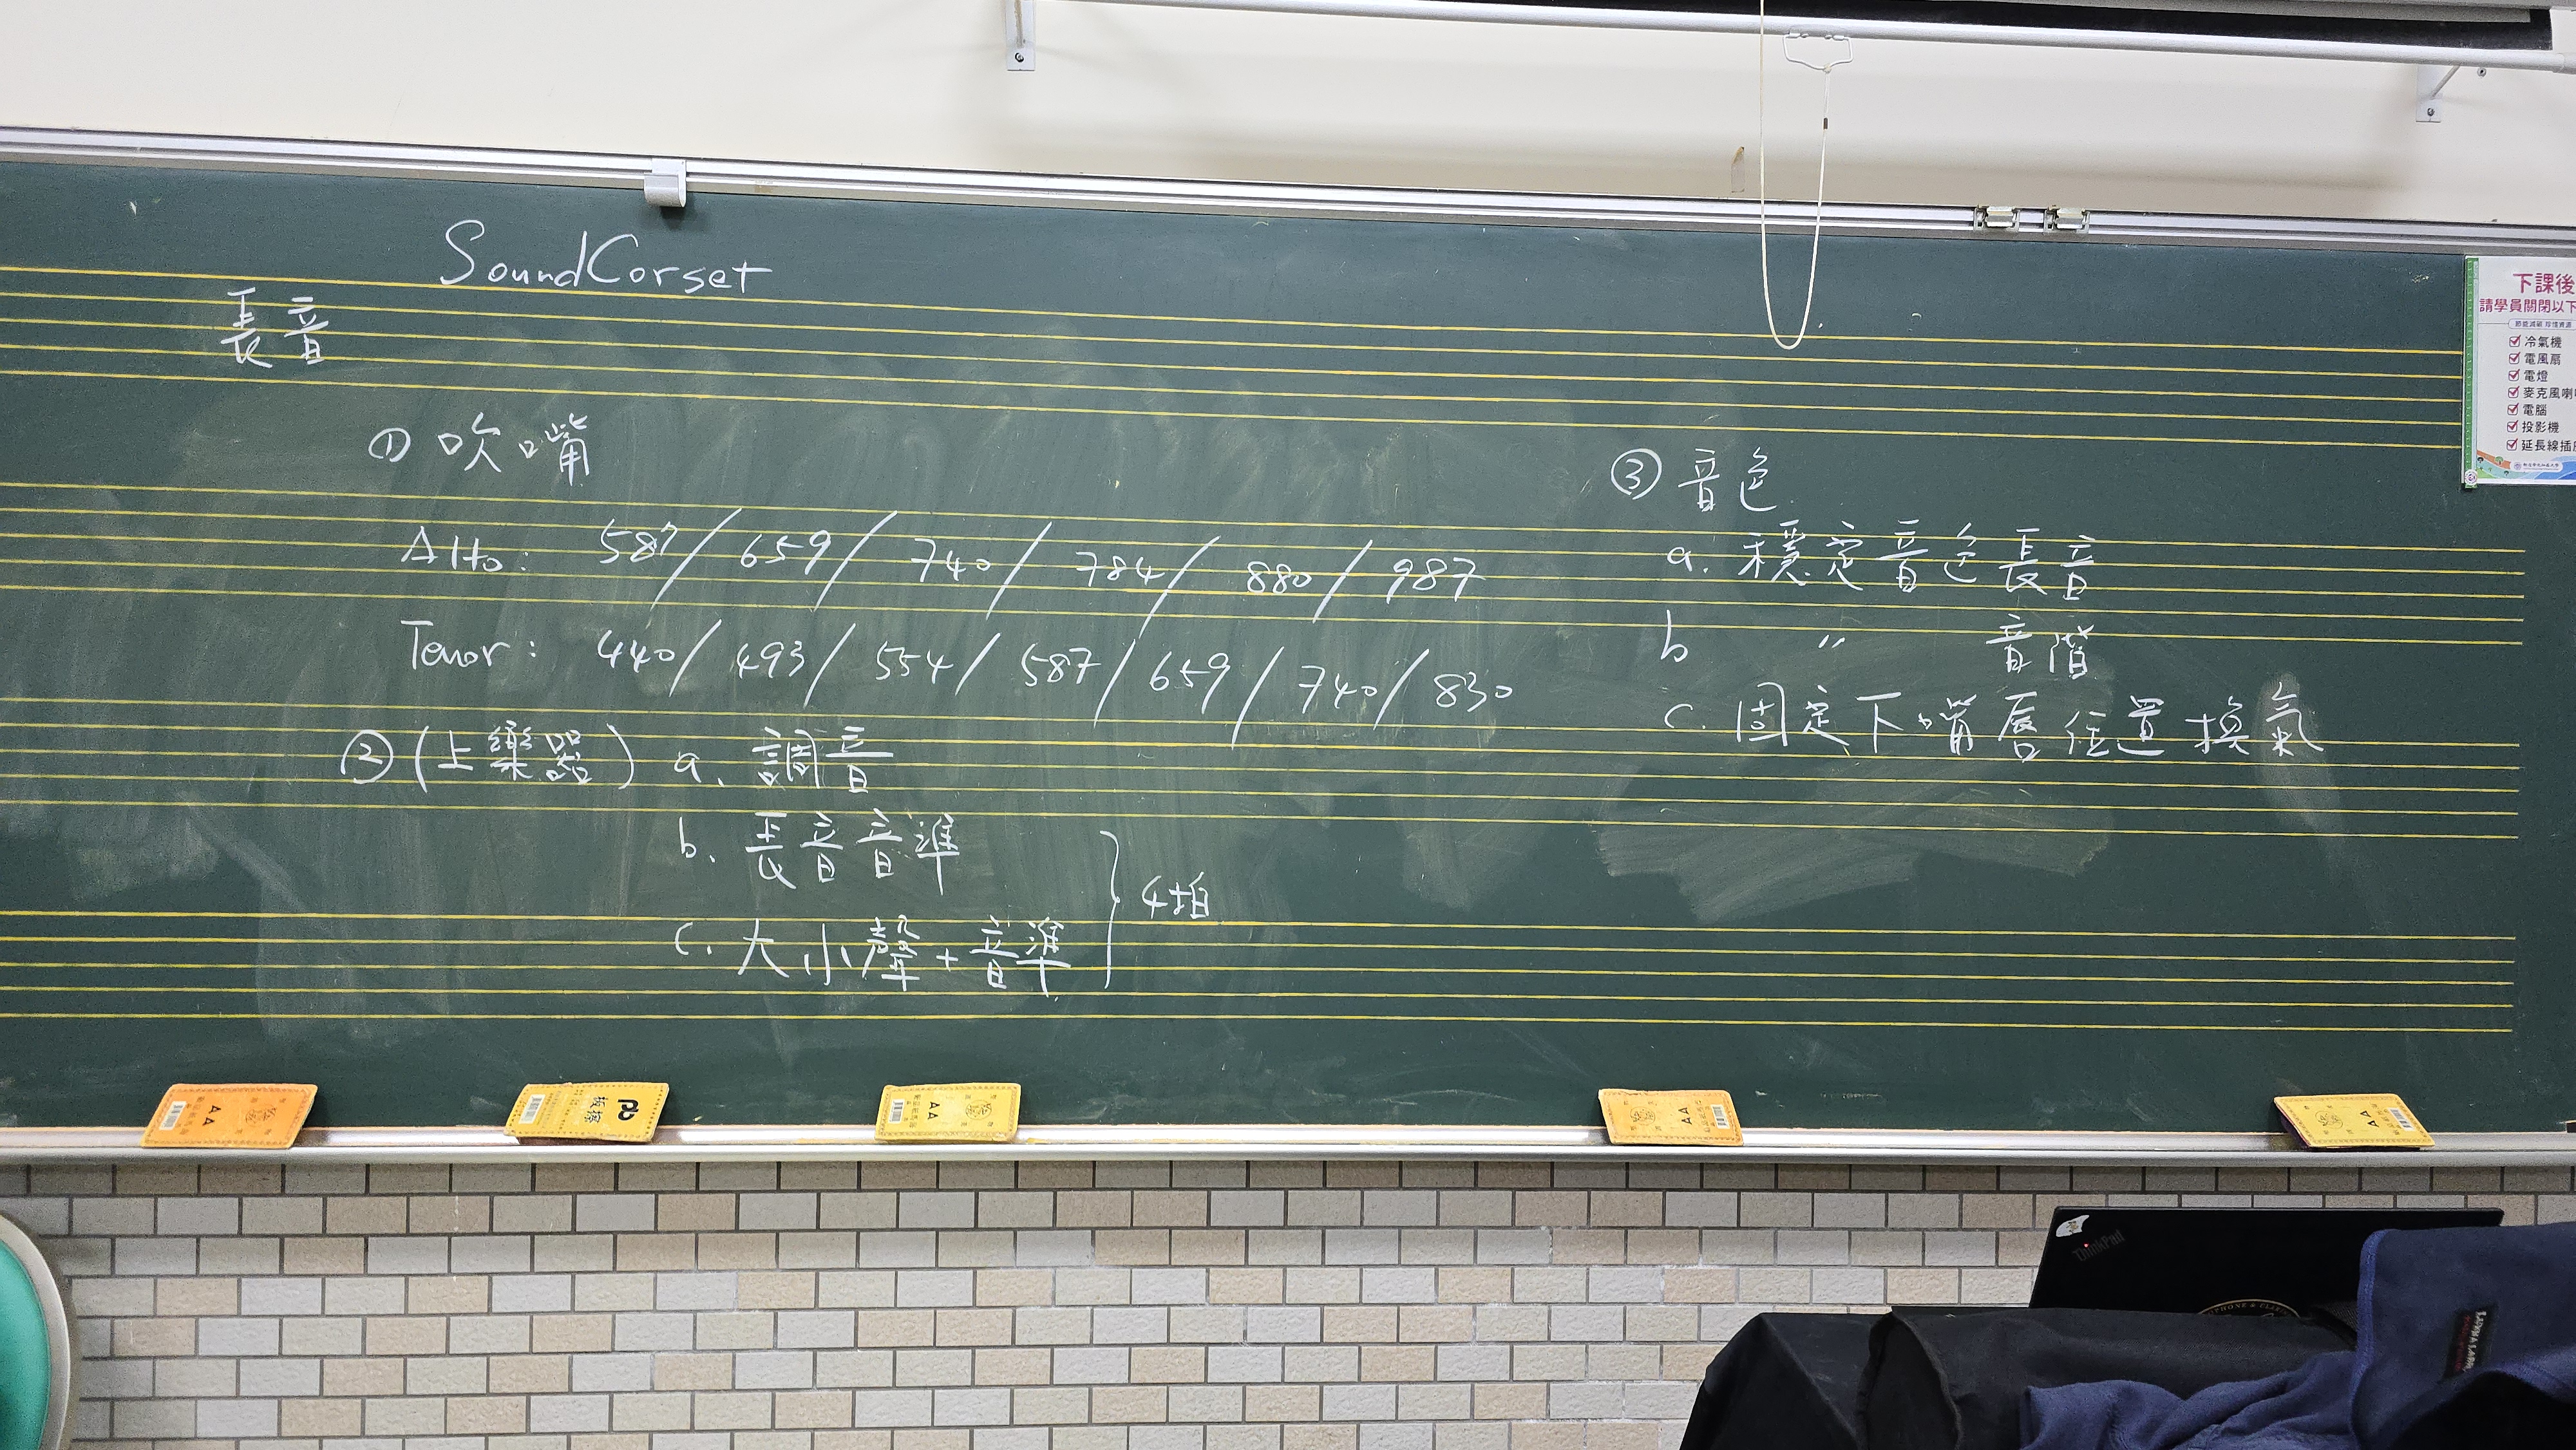 SoundCorset
長音
① 吹嘴
Alto: 587 / 659 / 740 / 784 / 880 / 987
Tenor: 440 / 493 / 554 / 587 / 659 / 740 / 830
② (上樂器) a. 調音
b. 長音音準
c. 大小聲+音準
4拍
③ 音色
a. 穩定音色長音
b 〃 音階
c. 固定下嘴唇位置換氣
下課後
請學員關閉以下
節能減碳 珍惜資源
冷氣機
電風扇
電燈
麥克風喇
電腦
投影機
延長線插
AA
板擦
AA
AA
AA
ThinkPad